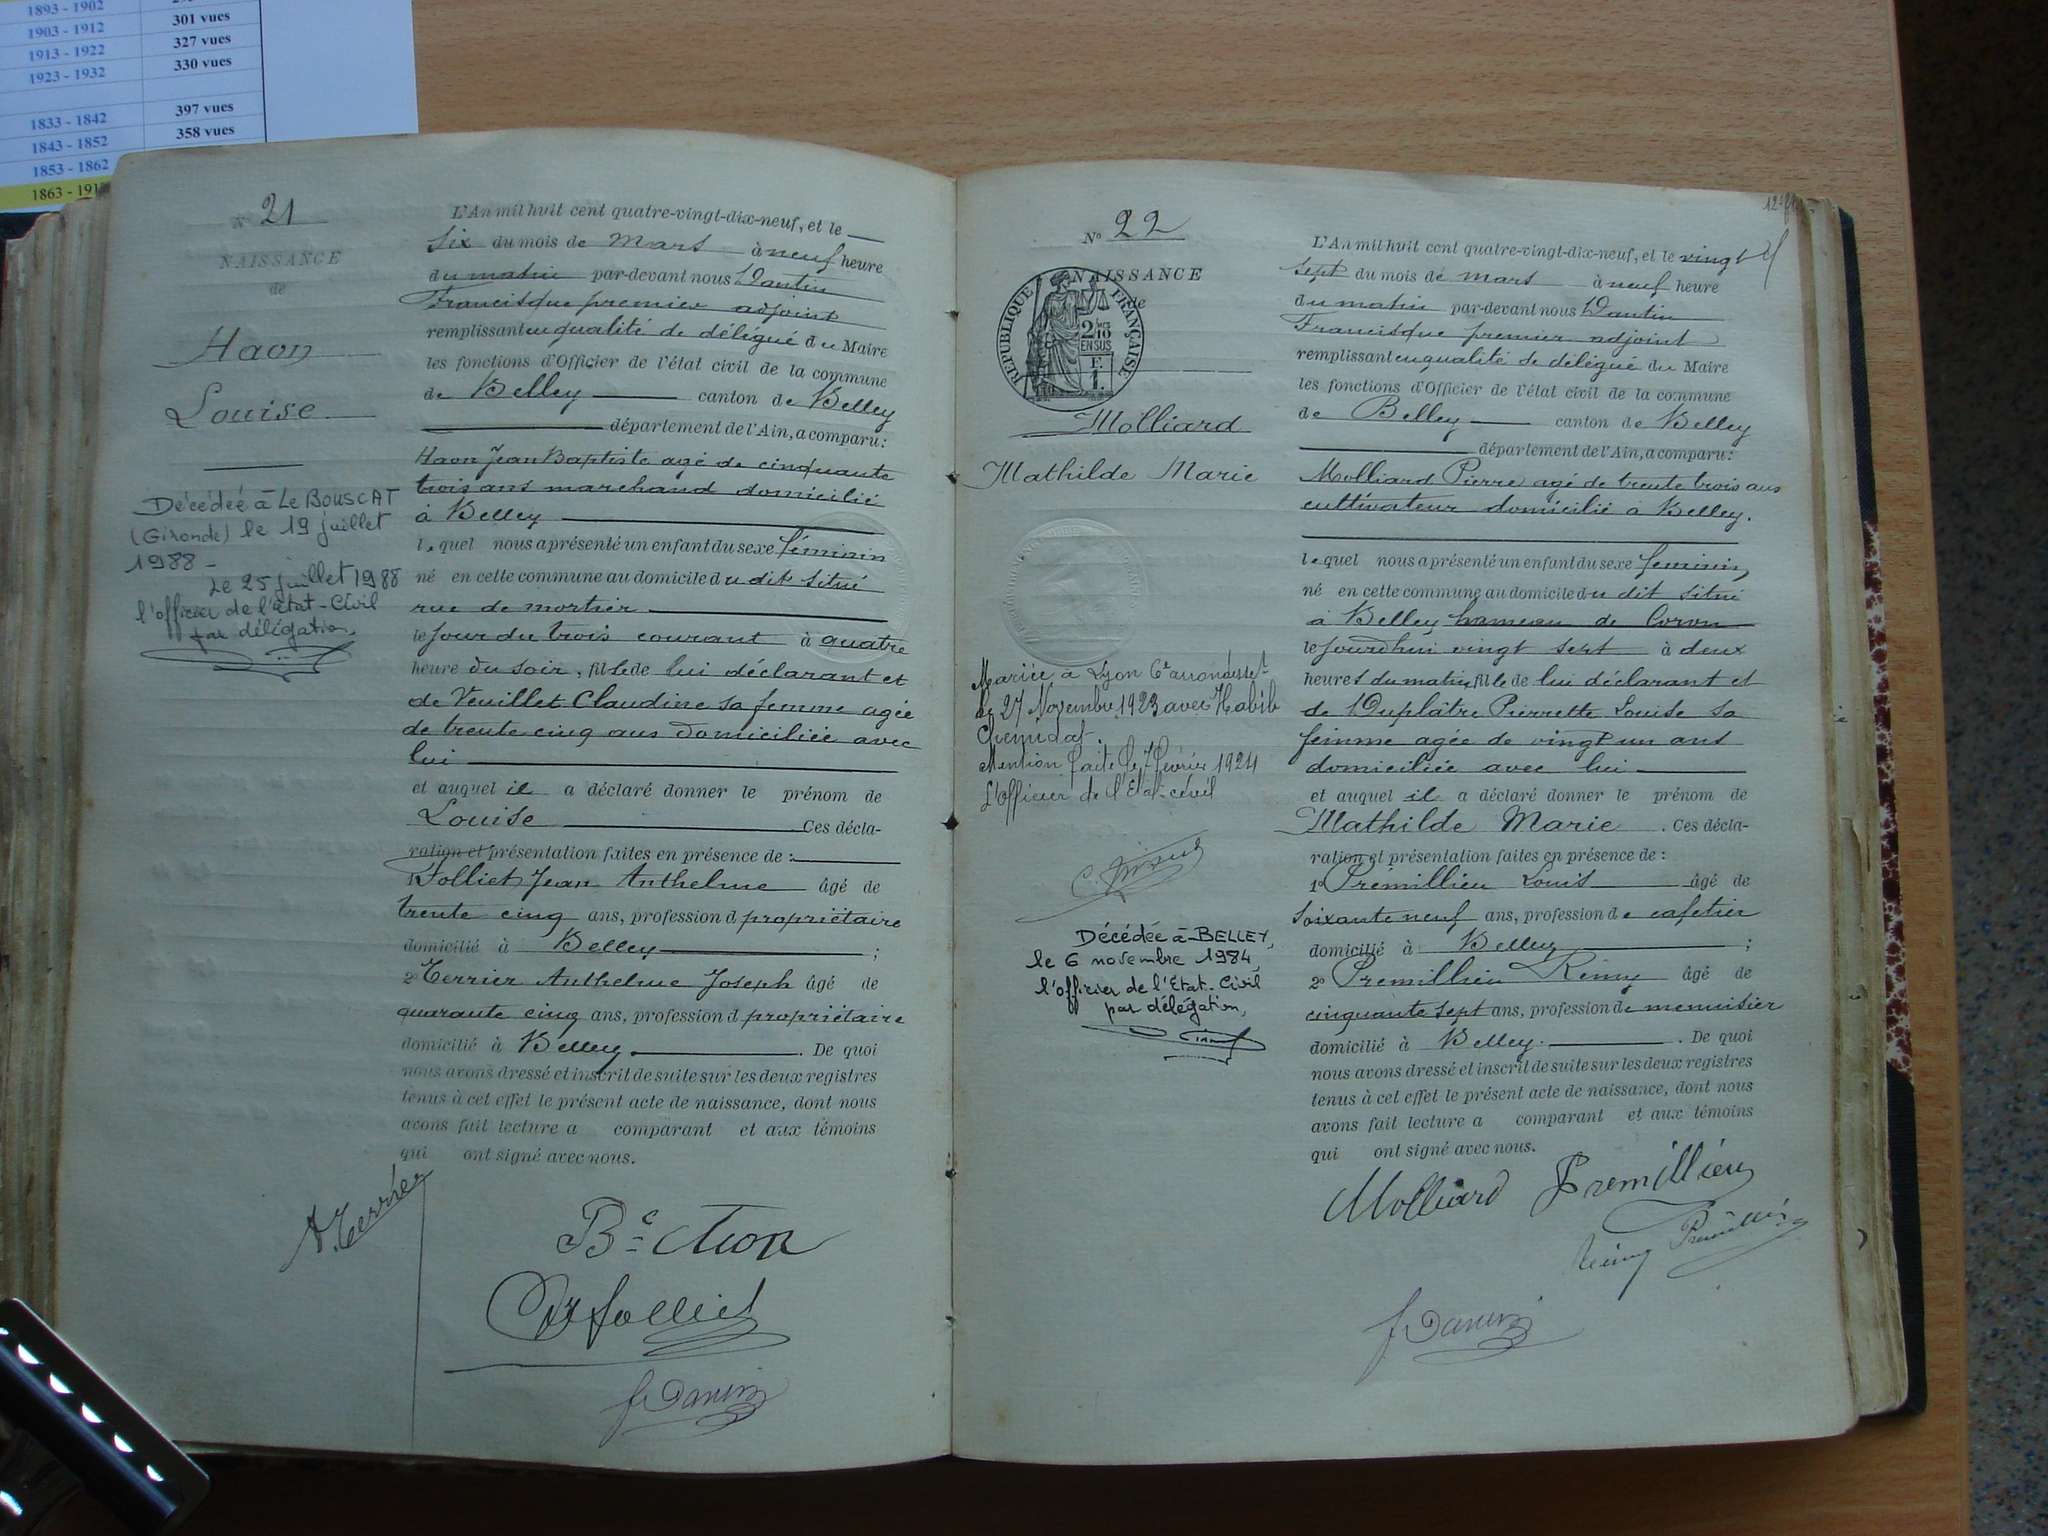 1893 - 1902
1903 - 1912 301 vues
1913 - 1922 327 vues
1923 - 1932 330 vues
1833 - 1842 397 vues
1843 - 1852 358 vues
1853 - 1862
1863 - 191
N° 21
NAISSANCE
de
Haon
Louise
Décédée à Le BOUSCAT
(Gironde) le 19 juillet
1988 -
Le 25 juillet 1988
l'officier de l'Etat-Civil
par délégation,
L'An mil huit cent quatre-vingt-dix-neuf, et le
six du mois de mars à neuf heure
du matin par-devant nous Dantin
Francisque premier adjoint
remplissant en qualité de délégué du Maire
les fonctions d'Officier de l'état civil de la commune
de Belley canton de Belley
département de l'Ain, a comparu:
Haon Jean Baptiste agé de cinquante
trois ans marchand domicilié
à Belley
lequel nous a présenté un enfant du sexe féminin
né en cette commune au domicile du dit situé
rue de mortier
le jour du trois courant à quatre
heure du soir, fille de lui déclarant et
de Veuillet Claudine sa femme agée
de trente cinq ans domiciliée avec
lui
et auquel il a déclaré donner le prénom de
Louise Ces décla-
ration et présentation faites en présence de :
1° Folliet Jean Anthelme âgé de
trente cinq ans, profession d propriétaire
domicilié à Belley ;
2° Terrier Anthelme Joseph âgé de
quarante cinq ans, profession d propriétaire
domicilié à Belley . De quoi
nous avons dressé et inscrit de suite sur les deux registres
tenus à cet effet le présent acte de naissance, dont nous
avons fait lecture a comparant et aux témoins
qui ont signé avec nous.
A. Terrier
Bte Haon
Folliet
F Dantin
N° 22
NAISSANCE
de
REPUBLIQUE FRANÇAISE
2/10
EN SUS
F.
1.
Molliard
Mathilde Marie
Mariée à Lyon 6e arrondisset
le 27 Novembre 1923 avec Habib
Mention faite le 7 février 1924
L'officier de l'Etat-civil
Décédée à BELLEY,
le 6 novembre 1984,
l'officier de l'Etat-Civil
par délégation,
L'An mil huit cent quatre-vingt-dix-neuf, et le vingt
sept du mois de mars à neuf heure
du matin par-devant nous Dantin
Francisque premier adjoint
remplissant en qualité de délégué du Maire
les fonctions d'Officier de l'état civil de la commune
de Belley canton de Belley
département de l'Ain, a comparu:
Molliard Pierre agé de trente trois ans
cultivateur domicilié à Belley.
lequel nous a présenté un enfant du sexe feminin,
né en cette commune au domicile du dit situé
à Belley hameau de Coron
le jourdhui vingt sept à deux
heures du matin fille de lui déclarant et
de Duplâtre Pierrette Louise sa
femme agée de vingt un ans
domiciliée avec lui
et auquel il a déclaré donner le prénom de
Mathilde Marie . Ces décla-
ration et présentation faites en présence de :
1° Prémillieu Louis âgé de
soixante neuf ans, profession de cafetier
domicilié à Belley ;
2° Premillieu Rémy âgé de
cinquante sept ans, profession de menuisier
domicilié à Belley. . De quoi
nous avons dressé et inscrit de suite sur les deux registres
tenus à cet effet le présent acte de naissance, dont nous
avons fait lecture a comparant et aux témoins
qui ont signé avec nous.
Molliard Premillieu
Rémy Prémillieu
F Dantin